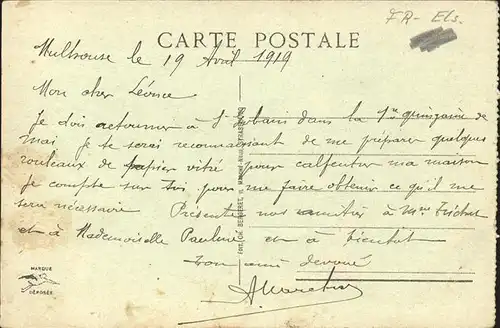 FR- Els.
CARTE POSTALE
Mulhouse le 19 Avril 1919
Mon cher Léonce
Je dois retourner à St Urbain dans la 1re quinzaine de
mai, Je te serai reconnaissant de me préparer quelques
rouleaux de papier vitré pour calfeutrer ma maison
Je compte sur toi pour me faire obtenir ce qu'il me
sera nécessaire Présente nos amitiés à Mme
et à Mademoiselle Pauline et à bientôt
Ton ami dévoué
MARQUE
DÉPOSÉE